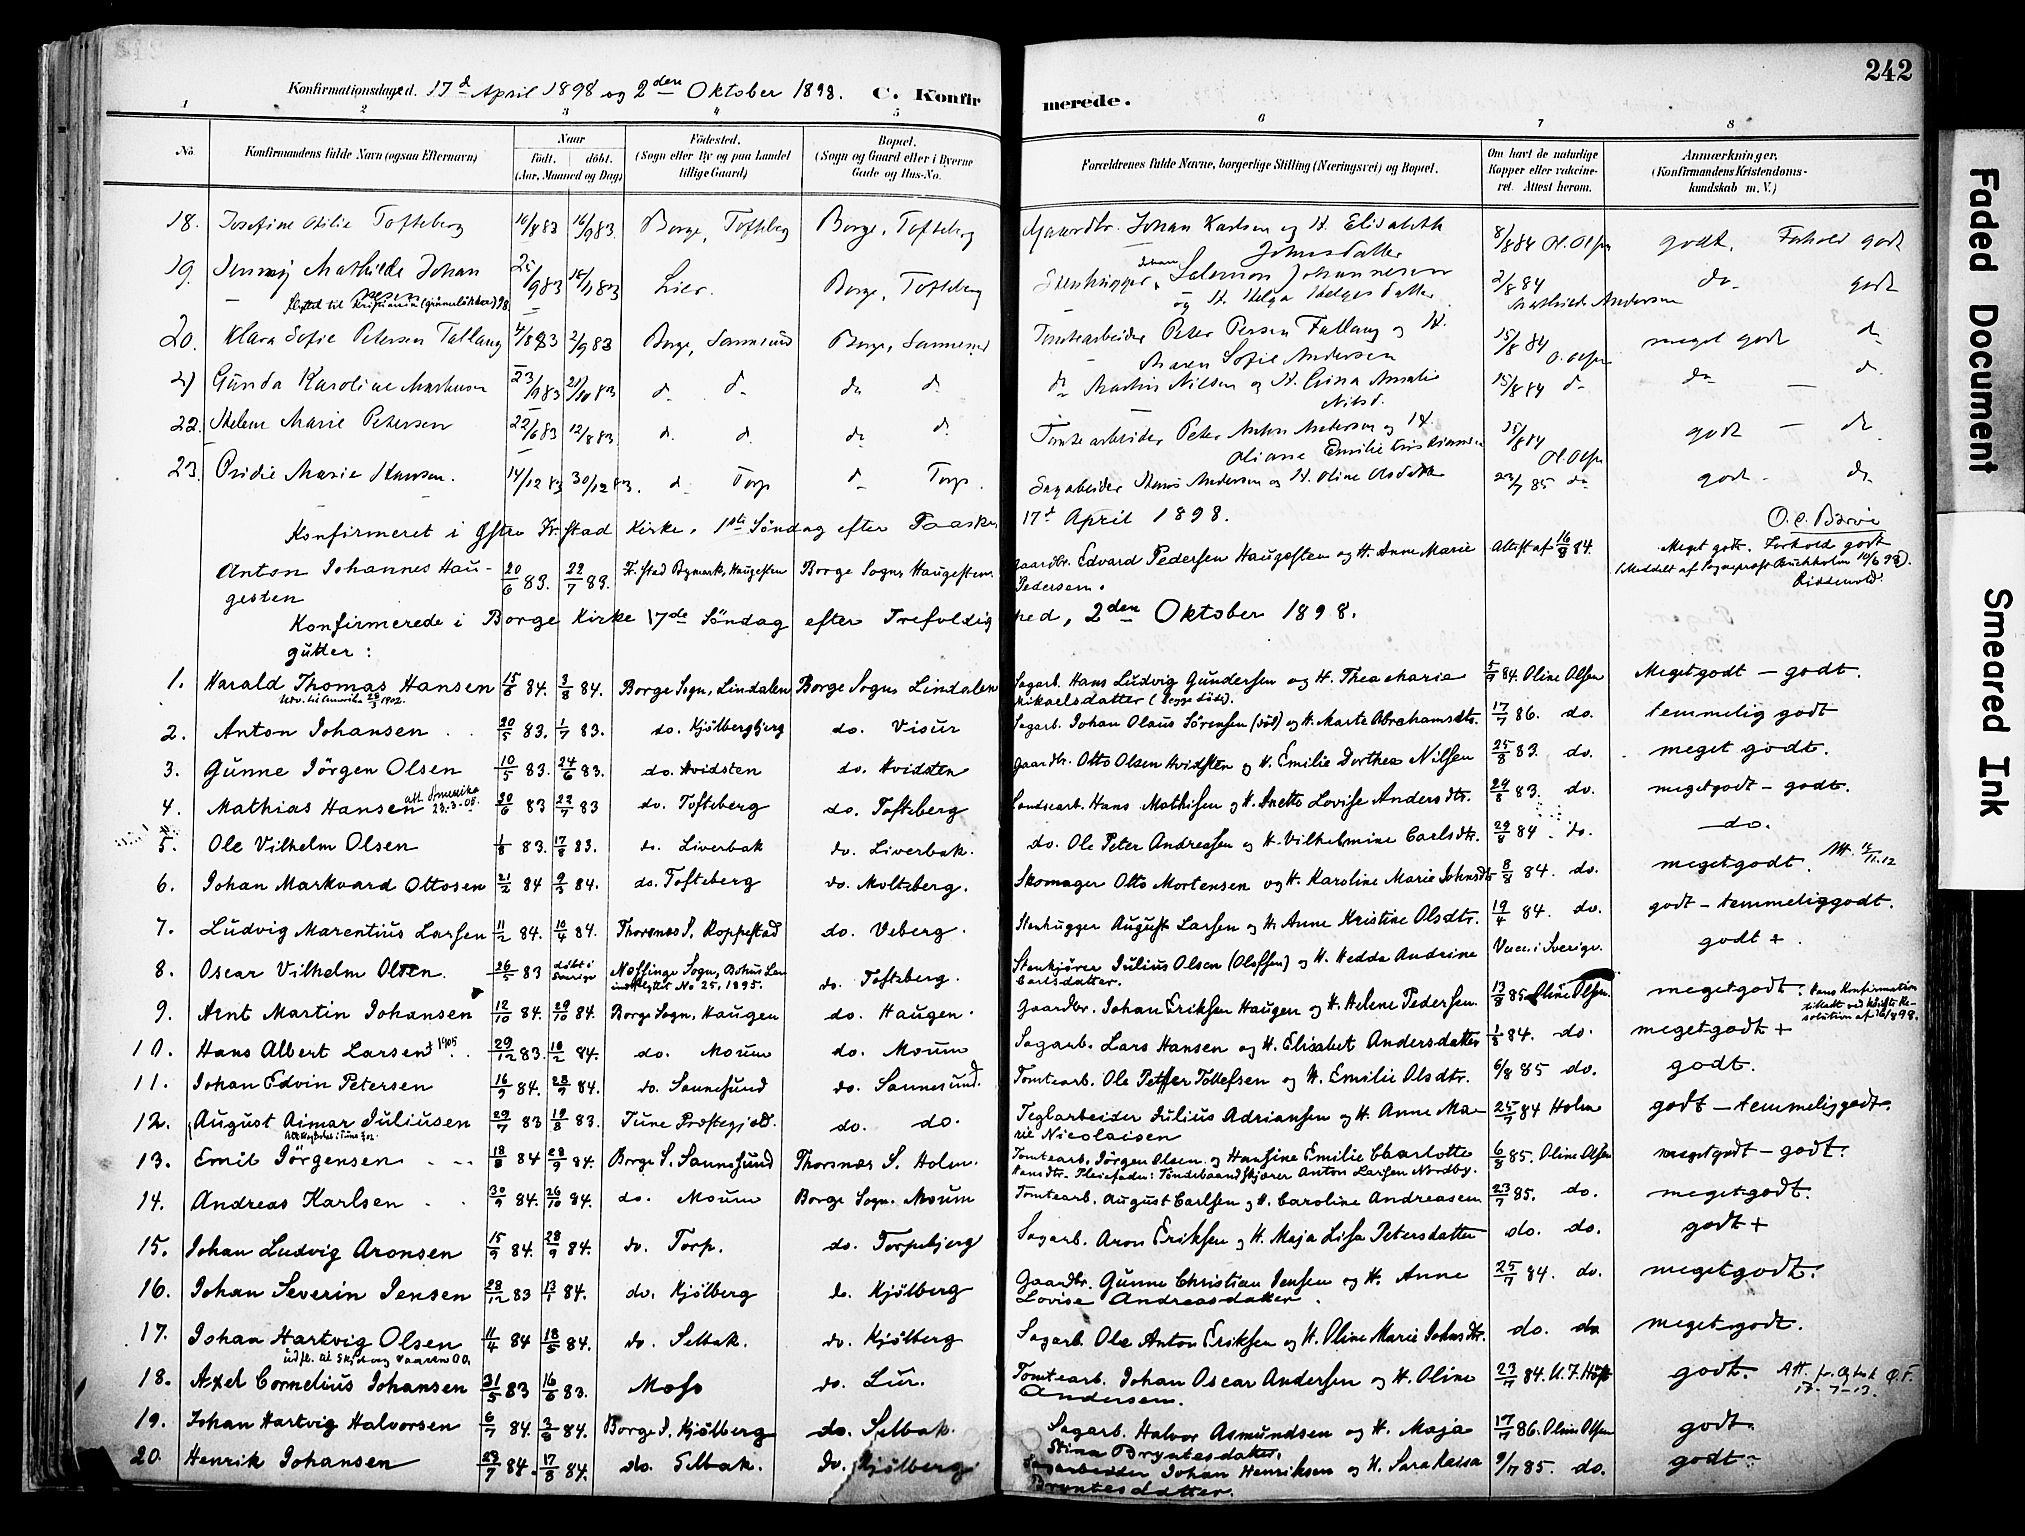 242
Konfirmationsdage d. 17d April 1898 og 2den Oktober 1898. C. Konfirmerede.
1 2 3 4 5 6 7 8
No. Konfirmandens fulde Navn (ogsaa Efternavn) Naar født. døbt. (Aar, Maaned og Dag) Fødested. (Sogn eller By og paa Landet tillige Gaard) Bopæl. (Sogn og Gaard eller i Byerne Gade og Hus-No. Forældrenes fulde Navne, borgerlige Stilling (Næringsvei) og Bopæl. Om havt de naturlige Kopper eller vakcineret. Attest herom. Anmærkninger, (Konfirmandens Kristendomskundskab m. V.)
18. Josefine Otilie Tofteberg 10/8 83 16/9 83. Borge, Tofteberg Borge, Tofteberg Gaardbr. Johan Karlsen og H. Elisabeth Johnsdatter 8/8 84 godt. Forhold godt
19. Jenny Mathilde Johansen 25/9 83 Lier. Borge, Tofteberg Stenhugger Salomon Johannesen og H. Helga Helgesdatter 2/8 84 Mathilde Andersen do godt
20. Klara Sofie Petersen Tallang 4/8 83 2/9 83 Borge, Sannesund Borge, Sannesund Tomtearbeider Peter Persen Tallang og H. Maren Sofie Andersen 15/8 84 meget godt do
21 Gunda Karoline 23/9 83 21/10 83 do do do do do Martin Nilsen og H. Amalie Nilsd. 15/8 84 do do — do
22. Helene Marie Petersen 22/6 83 12/8 83. do do do do Tomtearbeider Peter Anton Andersen og H. Oliane Emilie 15/8 84 godt — do
23. Marie Hansen. 14/12 83 30/12 83. do Torp do Torp. Sagarbeider Hans Andersen og H. Oline Olsdatter 23/7 85 do godt - do
Konfirmeret i Østre Fr.stad Kirke, 1ste Søndag efter Paaske, 17d April 1898.
Anton Johannes Haugesten 20/6 83. 22/7 83. Fr.stad Bymark, Haugesten Borge Sogn, Haugesten. Gaardbr. Edvard Pedersen Haugesten og H. Anne Marie Pedersen. Attest af 16/8 84. Meget godt. Forhold godt (Meddelt af Sogneprest Buchholm 10/6 98).
Konfirmerede i Borge Kirke 17de Søndag efter Trefoldighed, 2den Oktober 1898.
gutter:
1. Harald Thomas Hansen 15/6 84. 3/8 84. Borge Sogn, Lindalen Borge Sogn, Lindalen Sagarb. Hans Ludvig Gundersen og H. Thea Marie Mikaelsdatter (begge døde). 5/7 84. Oline Olsen Megetgodt - godt.
Udv. til Amerika 28/3 1902.
2. Anton Johansen 20/5 83. 1/7 83. do. Kjølbergbjerg do. Visur Sagarb. Johan Olaus Sørensen (død) og H. Marte Abrahamsdtr. 17/7 86. do. temmelig godt
3. Gunne Jørgen Olsen 10/5 83. 24/6 83. do. Hvidsten do. Hvidsten Gaardbr. Otto Olsen Hvidsten og H. Emilie Dorthea Nilsen 25/8 83. do. meget godt.
4. Mathias Hansen att. Amerika 23.3-05. 20/6 83 22/7 83 do. Tofteberg do. Tofteberg Landsarb. Hans Mathisen og H. Anette Lovise Andersdtr. 29/8 83. do. megetgodt - godt.
5. Ole Vilhelm Olsen 1/8 83. 17/8 83. do. Liverbak do. Liverbak. do. Ole Peter Andreassen og H. Vilhelmine Carlsdtr. 29/8 84. do. do.
6. Johan Markvard Ottosen 21/2 84 9/3 84. do. Tofteberg do. Molteberg. Skomager Otto Mortensen og H. Karoline Marie Johnsdtr 8/8 84. do. megetgodt.
7. Ludvig Marentius Larsen 11/2 84. 10/4 84. Thorsnæs S. Roppestad do. Veberg. Stenhugger August Larsen og H. Anne Kristine Olsdtr. 19/4 84. do. godt - temmeliggodt.
8. Oscar Vilhelm Olsen. 26/5 83 døbt i Sverige Næssinge Sogn, Bohus Len indflyttet No 25, 1895. do. Tofteberg. Stenkjører Julius Olsen (Olossen) og H. Hedda Andrine Carlsdatter. Vacc. i Sverige. godt +.
9. Arnt Martin Johansen 12/10 84. 29/10 84. Borge Sogn, Haugen do. Haugen. Gaardbr. Johan Eriksen Haugen og H. Helene Pedersen. 13/8 85 Oline Olsen. megetgodt. Hans Konfirmation tilladt ved Resolution af
10. Hans Albert Larsen † 1905 29/12 83. 10/2 84. do. Moum do. Moum Sagarb. Lars Hansen og H. Elisabet Andersdatter 1/8 84. do. megetgodt +
11. Johan Edvin Petersen 16/9 84. 28/9 84. do. Sannesund do. Sannesund. Tomtearb. Ole Petter Tollefsen og H. Emilie Olsdtr. 6/8 85 do. godt.
12. August Aimar Juliusen 29/7 83 19/8 83. Tune Prestegjeld. do. do. Teglarbeider Julius Adriansen og H. Anne Marie Nicolaisen 25/7 84 Holm godt - temmeliggodt.
13. Emil Jørgensen 18/8 84 28/9 84. Borge S. Sannesund Thorsnæs S. Holm. Tomtearb. Jørgen Olsen og Hansine Emilie Charlotte Hansdtr. Pleiefader: Tøndebaandskjører Anton Larsen Nordby. 6/8 85. Oline Olsen megetgodt - godt.
14. Andreas Karlsen 30/9 84. 26/10 84. do. Moum Borge Sogn. Moum Tomtearb. August Carlsen og H. Caroline Andreasen 23/7 85. do. megetgodt.
15. Johan Ludvig Aronsen 15/9 84. 28/9 84. do. Torp. do. Torpebjerg Sagarb. Aron Eriksen og H. Maja Lisa Petersdatter do. do. godt +
16. Johan Severin Jensen 28/12 83 13/1 84. do. Kjølberg do. Kjølberg Gaardbr. Gunne Christian Jensen og H. Anne Lovise Andreasdatter. 25/7 84. do. megetgodt.
17. Johan Hartvig Olsen 11/4 84 18/5 84. do. Selbak. do. Kjølberg Sagarb. Ole Anton Eriksen og H. Oline Marie Johnsdtr. do. do megetgodt.
18. Axel Cornelius Johansen 31/5 83 16/6 83. Moss do. Lur. Tomtearb. Johan Oscar Andersen og H. Oline Andersen. 23/7 84. godt.
19. Johan Hartvig Halvorsen 6/7 84. 3/8 84. Borge S. Kjølberg do. Selbak. Sagarb. Halvor Asmundsen og H. Maja Stina Bryntesdatter. 17/7 86. Oline Olsen godt.
20. Henrik Johansen 29/7 84. 17/8 84. do. Selbak. do. Kjølberg Sagarbeider Johan Henriksen og H. Sara Kaisa Bryntesdatter. 9/7 85. do. godt.
Faded Document
Smeared Ink